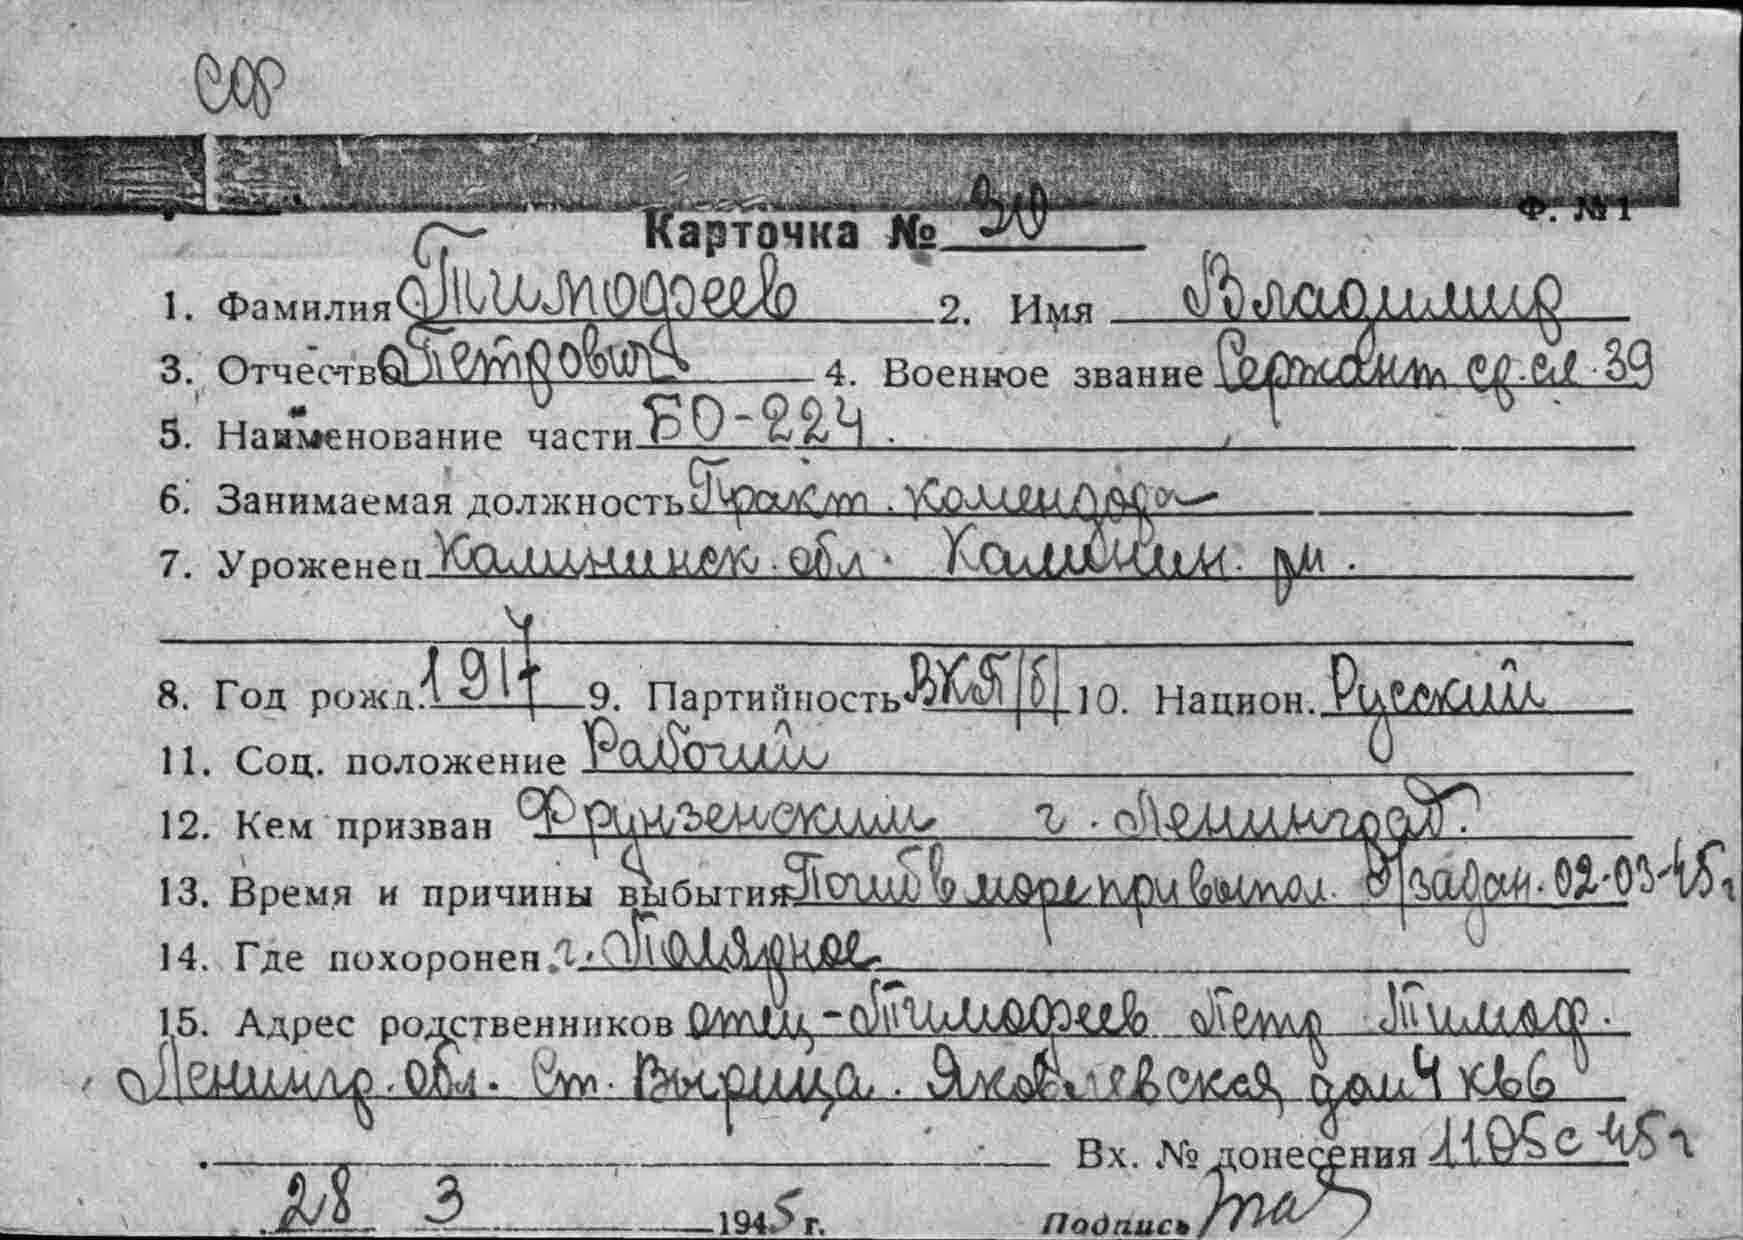 Ф. №1
Карточка № 30
1. Фамилия Тимофеев 2. Имя Владимир
3. Отчество Петрович 4. Военное звание Сержант ср. сл. 39
5. Наименование части БО-224.
6. Занимаемая должность Практ. комендора
7. Уроженец Калининск. обл. Калинин. рн.
8. Год рожд. 1917 9. Партийность ВКП/б/ 10. Национ. Русский
11. Соц. положение Рабочий
12. Кем призван Фрунзенским г. Ленинград.
13. Время и причины выбытия Погиб в море при выпол. б/задан. 02-03-45г
14. Где похоронен г. Полярное
15. Адрес родственников отец - Тимофеев Петр Тимоф.
Ленингр. обл. Ст. Вырица. Яковлевская дом 4 кв 6
Вх. № донесения 1105с 45г
28 3 1945 г. Подпись